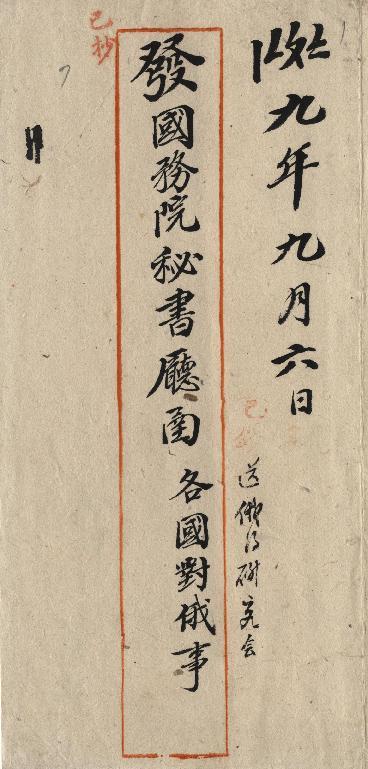 九年九月六日
送俄研究会
發國務院秘書廳函 各國對俄事
已抄